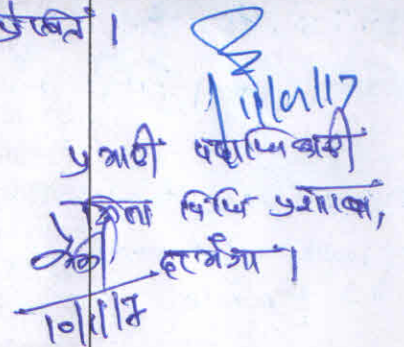 प्रेषित।
11/01/17
प्रभारी पदाधिकारी
जिला विधि प्रशाखा,
दरभंगा।
10/1/17